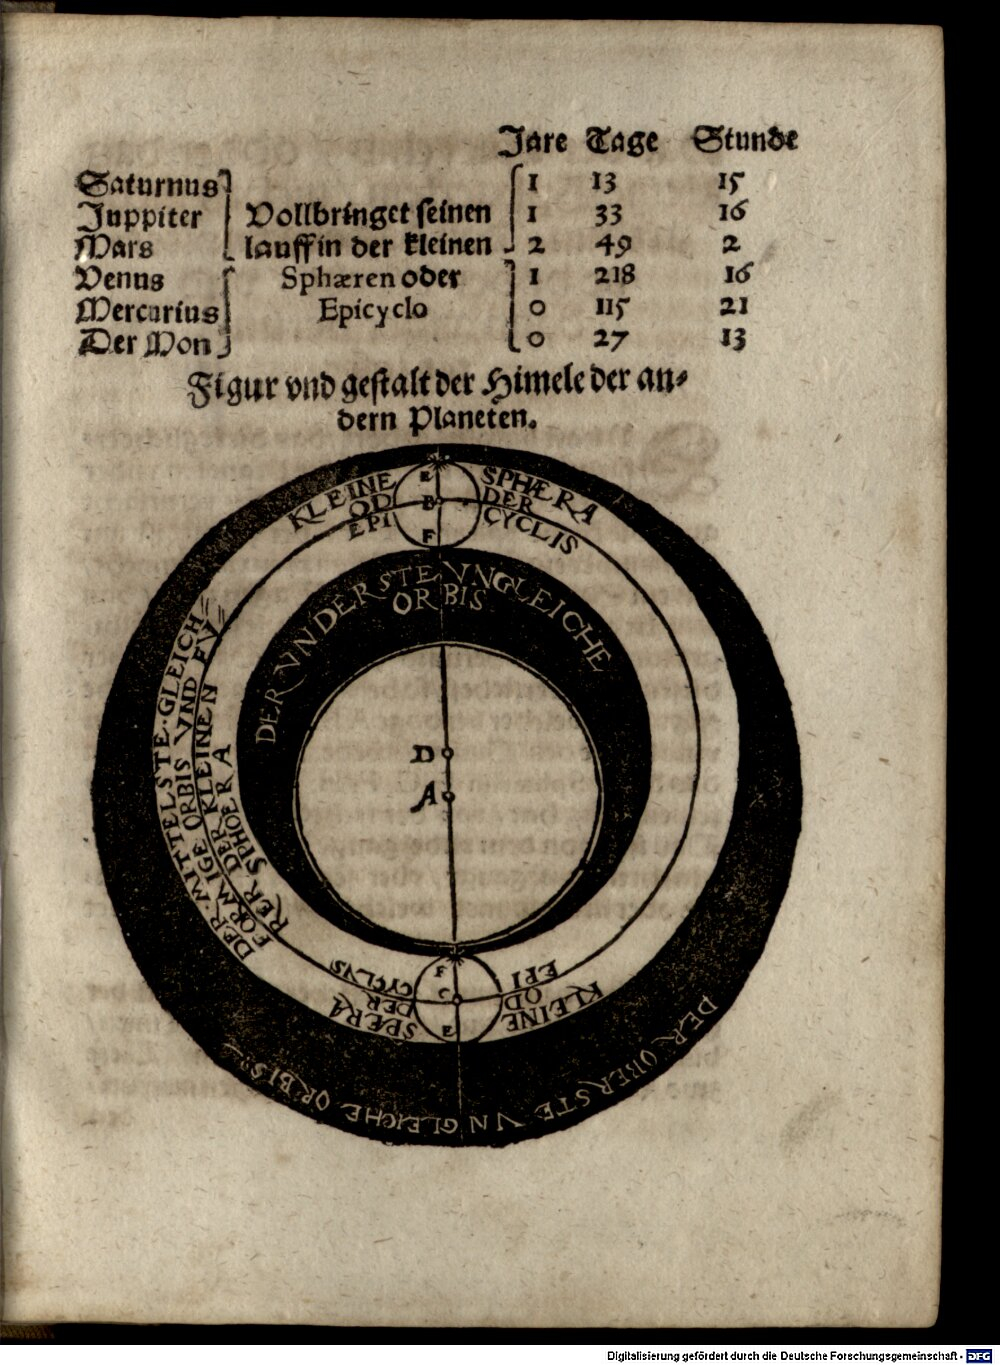 Jare Tage Stunde
Saturnus 1 13 15
Juppiter Vollbringet seinen 1 33 16
Mars lauff in der kleinen 2 49 2
Venus Sphæren oder 1 218 16
Mercurius Epicyclo 0 115 21
Der Mon 0 27 13
Figur vnd gestalt der Himele der an⸗
dern Planeten.
KLEINE SPHÆRA
OD DER
EPI CYCLIS
E
B
F
DER VNDERSTE VNGLEICHE
ORBIS
DER MITTELSTE GLEICH⸗
FORMIGE ORBIS VND FV⸗
RER DER KLEINEN
SPHOERA
D
A
F
C
E
EPI CYCLVS
OD DER
KLEINE SPÆRA
DER OBERSTE VNGLEICHE ORBIS
Digitalisierung gefördert durch die Deutsche Forschungsgemeinschaft - DFG